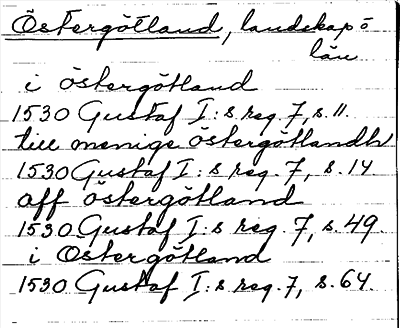 Östergötland, landskap o
län
i östergötland
1530 Gustaf I:s reg. 7, s. 11.
till menige östergötlandh
1530 Gustaf I:s reg. 7, s. 14
aff östergötland
1530 Gustaf I:s reg. 7, s. 49.
i Östergötland
1530 Gustaf I:s reg. 7, s. 64.